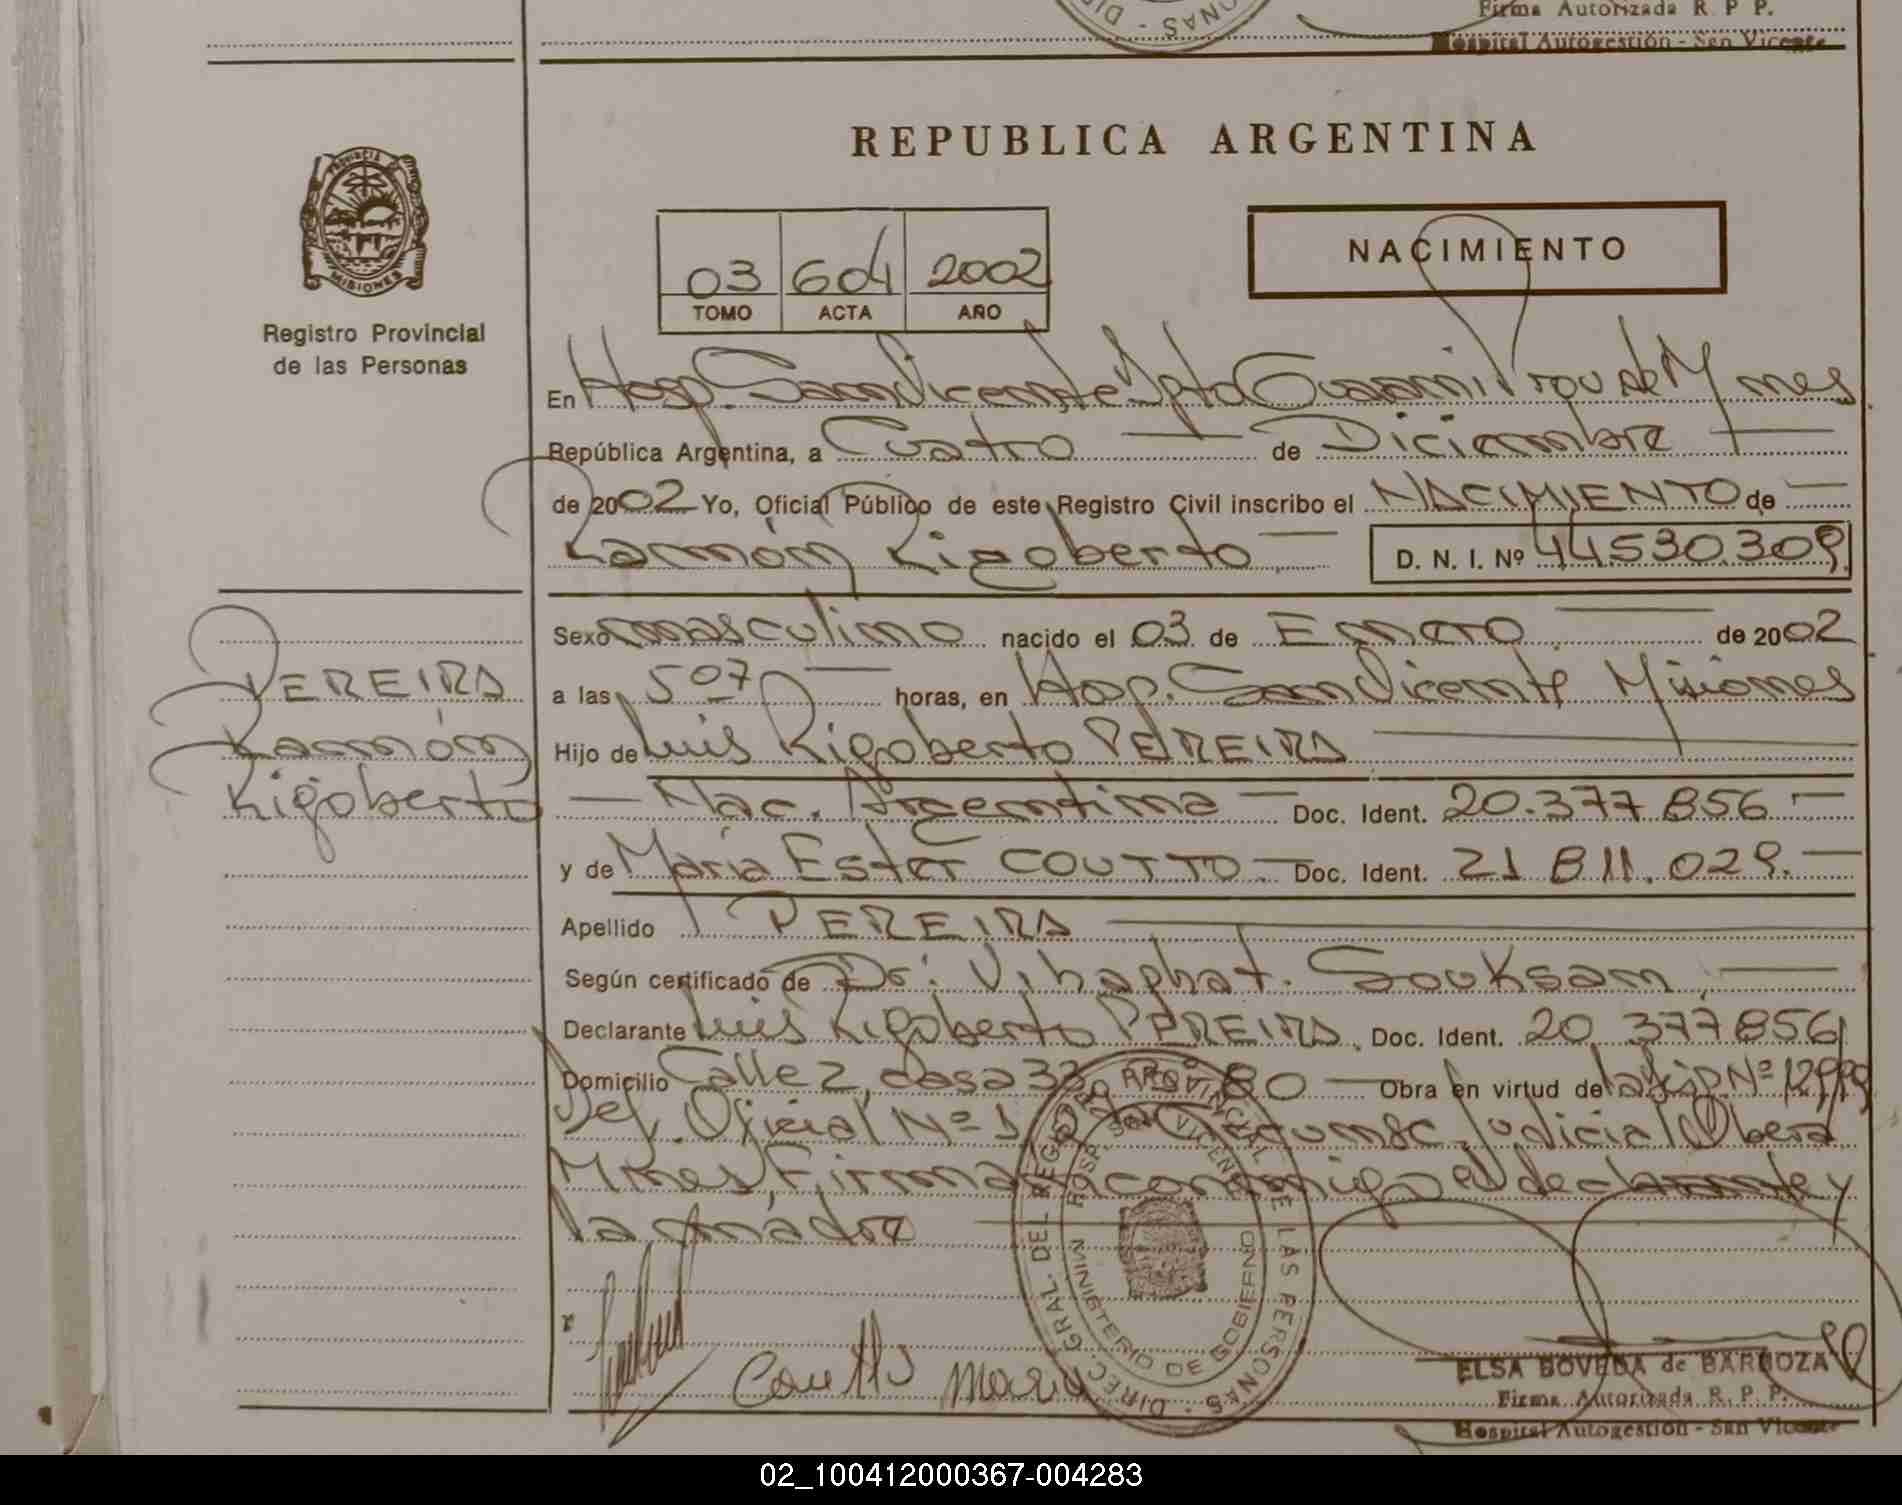 Firma Autorizada R. P. P.
Hospital Autogestión - San Vicente
REPUBLICA ARGENTINA
PROVINCIA DE
MISIONES
Registro Provincial
de las Personas
03 604 2002
TOMO ACTA AÑO
NACIMIENTO
En Hosp. San Vicente Dpto Guarani Prov de Mnes
República Argentina, a Cuatro de Diciembre
de 2002 Yo, Oficial Público de este Registro Civil inscribo el NACIMIENTO de
Ramón Rigoberto D. N. I. Nº 44530.309
Sexo masculino nacido el 03 de Enero de 2002
a las 5 07 horas, en Hosp. San Vicente Misiones
Hijo de Luis Rigoberto PEREIRA
Nac. Argentina Doc. Ident. 20.377.856
y de María Ester COUTTO Doc. Ident. 21 811.029.
Apellido PEREIRA
Según certificado de Dr: Vihaphat. Souksam
Declarante Luis Rigoberto PEREIRA. Doc. Ident. 20 377856
Domicilio Calle 2, casa 33 80 Obra en virtud de la Nº
Def. Oficial Nº 1 Circunsc. Judicial Obera
Mnes, Firma conmigo el declarante y
la madre
PEREIRA
Ramón
Rigoberto
DIREC. GRAL. DEL REGISTRO PROVINCIAL DE LAS PERSONAS
HOSP. SAN VICENTE
MINISTERIO DE GOBIERNO
Coutto Maria
ELSA BOVEDA de BARBOZA
Firma Autorizada R. P. P.
Hospital Autogestión - San Vicente
02_100412000367-004283